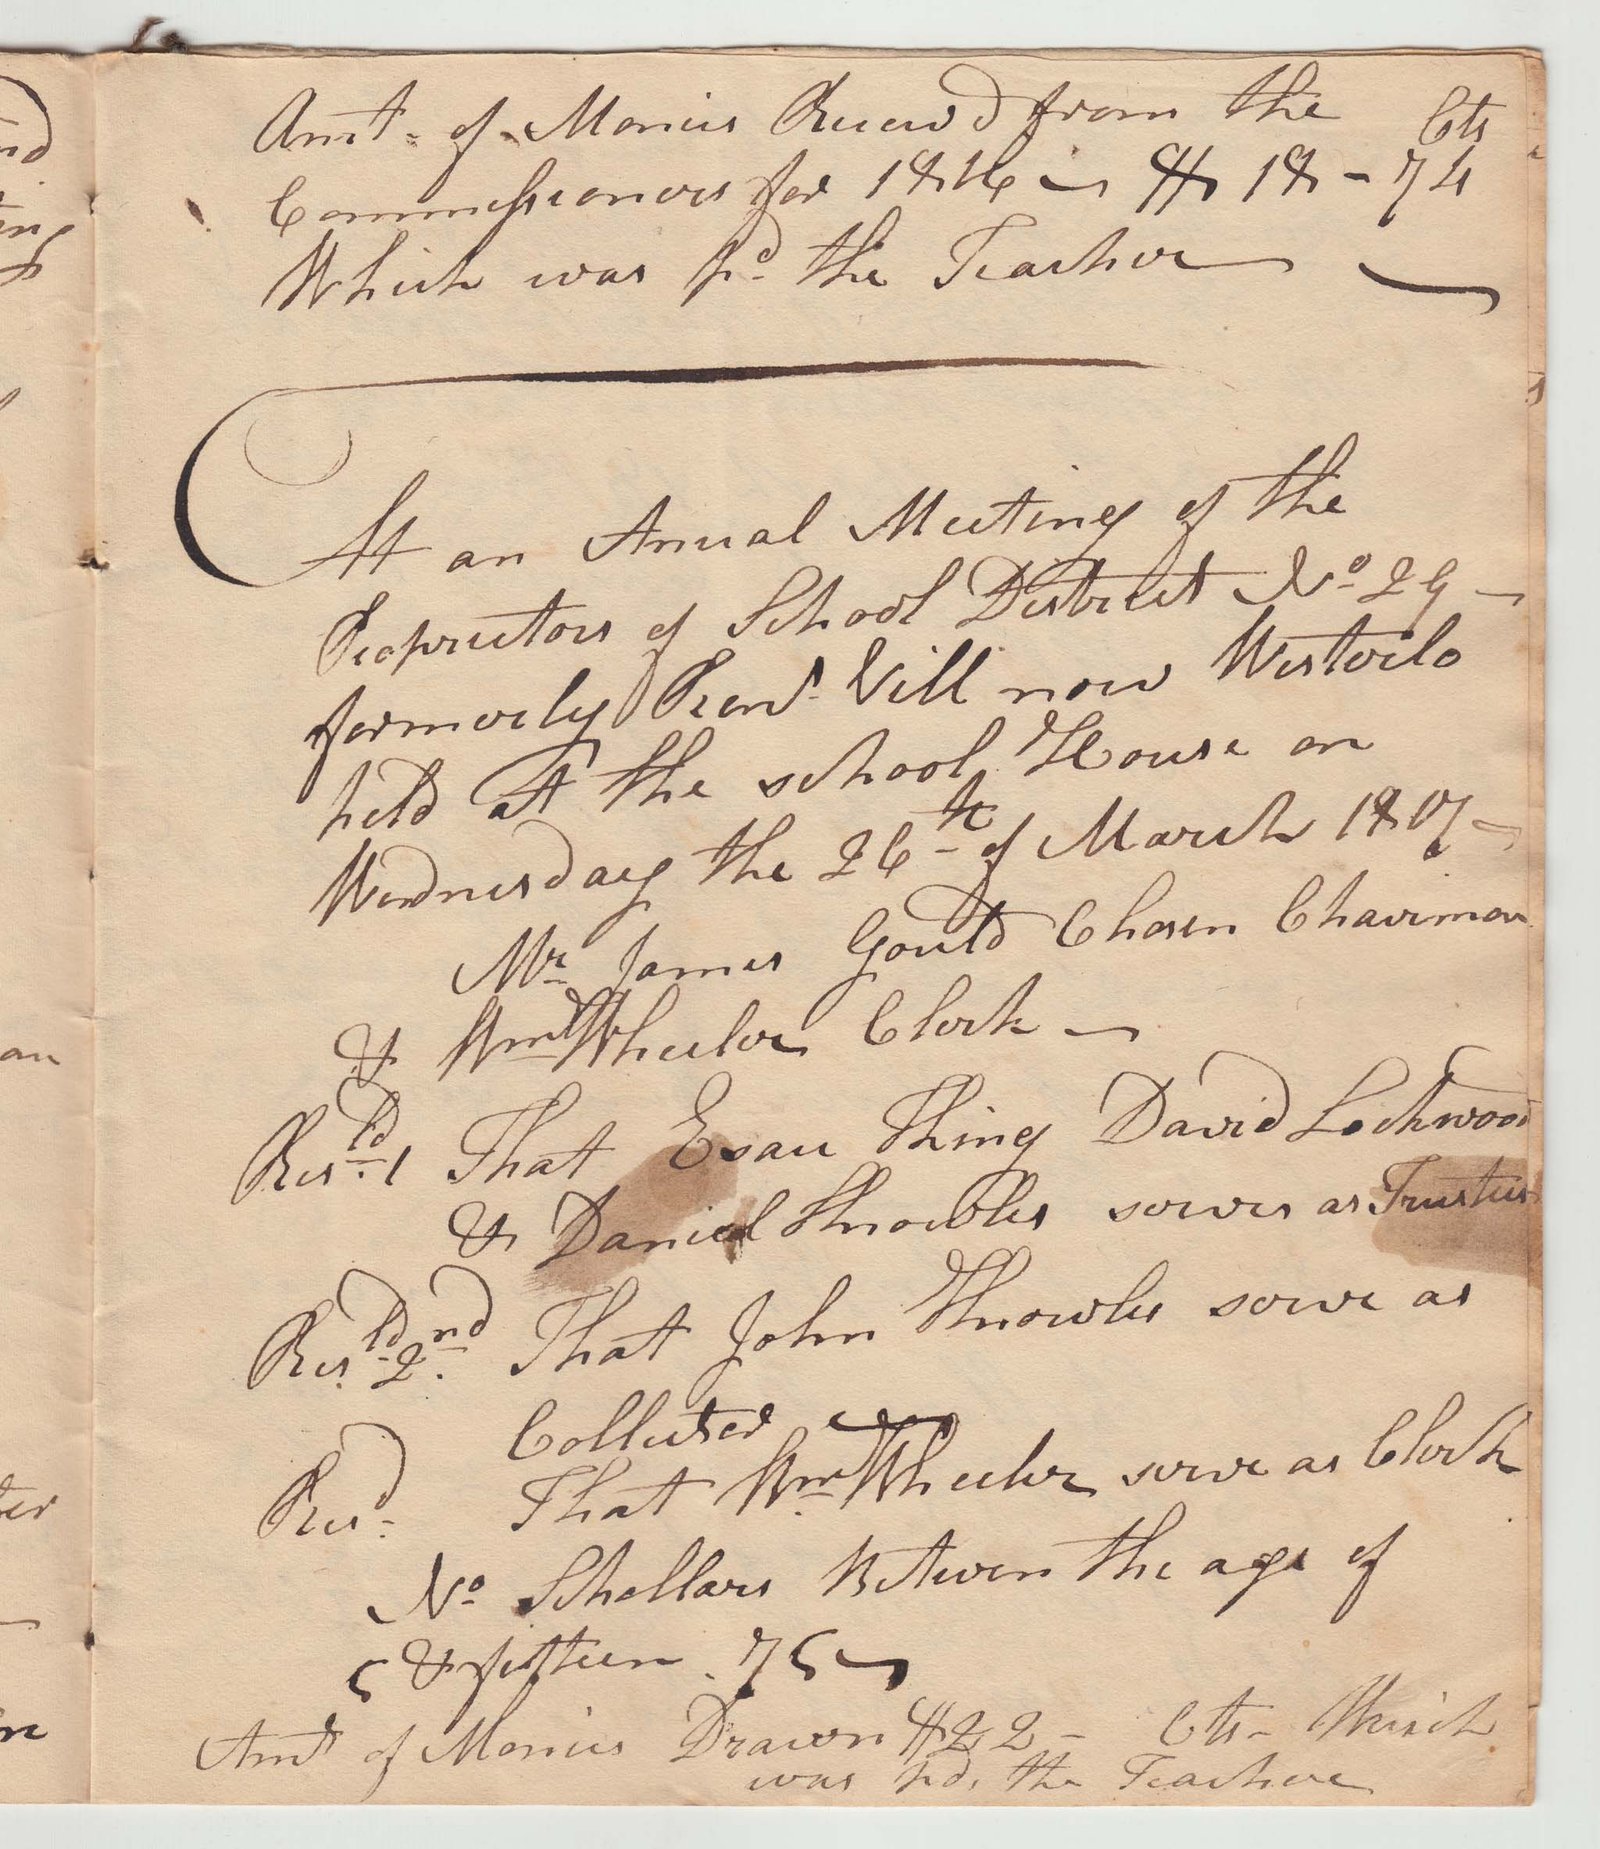 Amt. of Monies Receivd from the Cts
Commissioners for 1816 $ 18 - 74
Which was pd the Teacher
At an Anual Meeting of the
Proprietors of School District No 29
formerly Rens Vill now Westerlo
held At the school House on
Wednesday the 26th of March 1817
Mr James Gould Chosen Chairman
& Wm Wheeler Clerk
Resld 1 That Esau Thing David Lockwood
& Daniel Knowles serves as Trustees
Resld 2nd That John Knowles serve as
Collecter
Resd That Wm Wheeler serve as Clerk
No Schollars Between the age of
5 & fifteen . 75
Amt of Monies Drawn $22 - Cts - Which
was pd. the Teacher